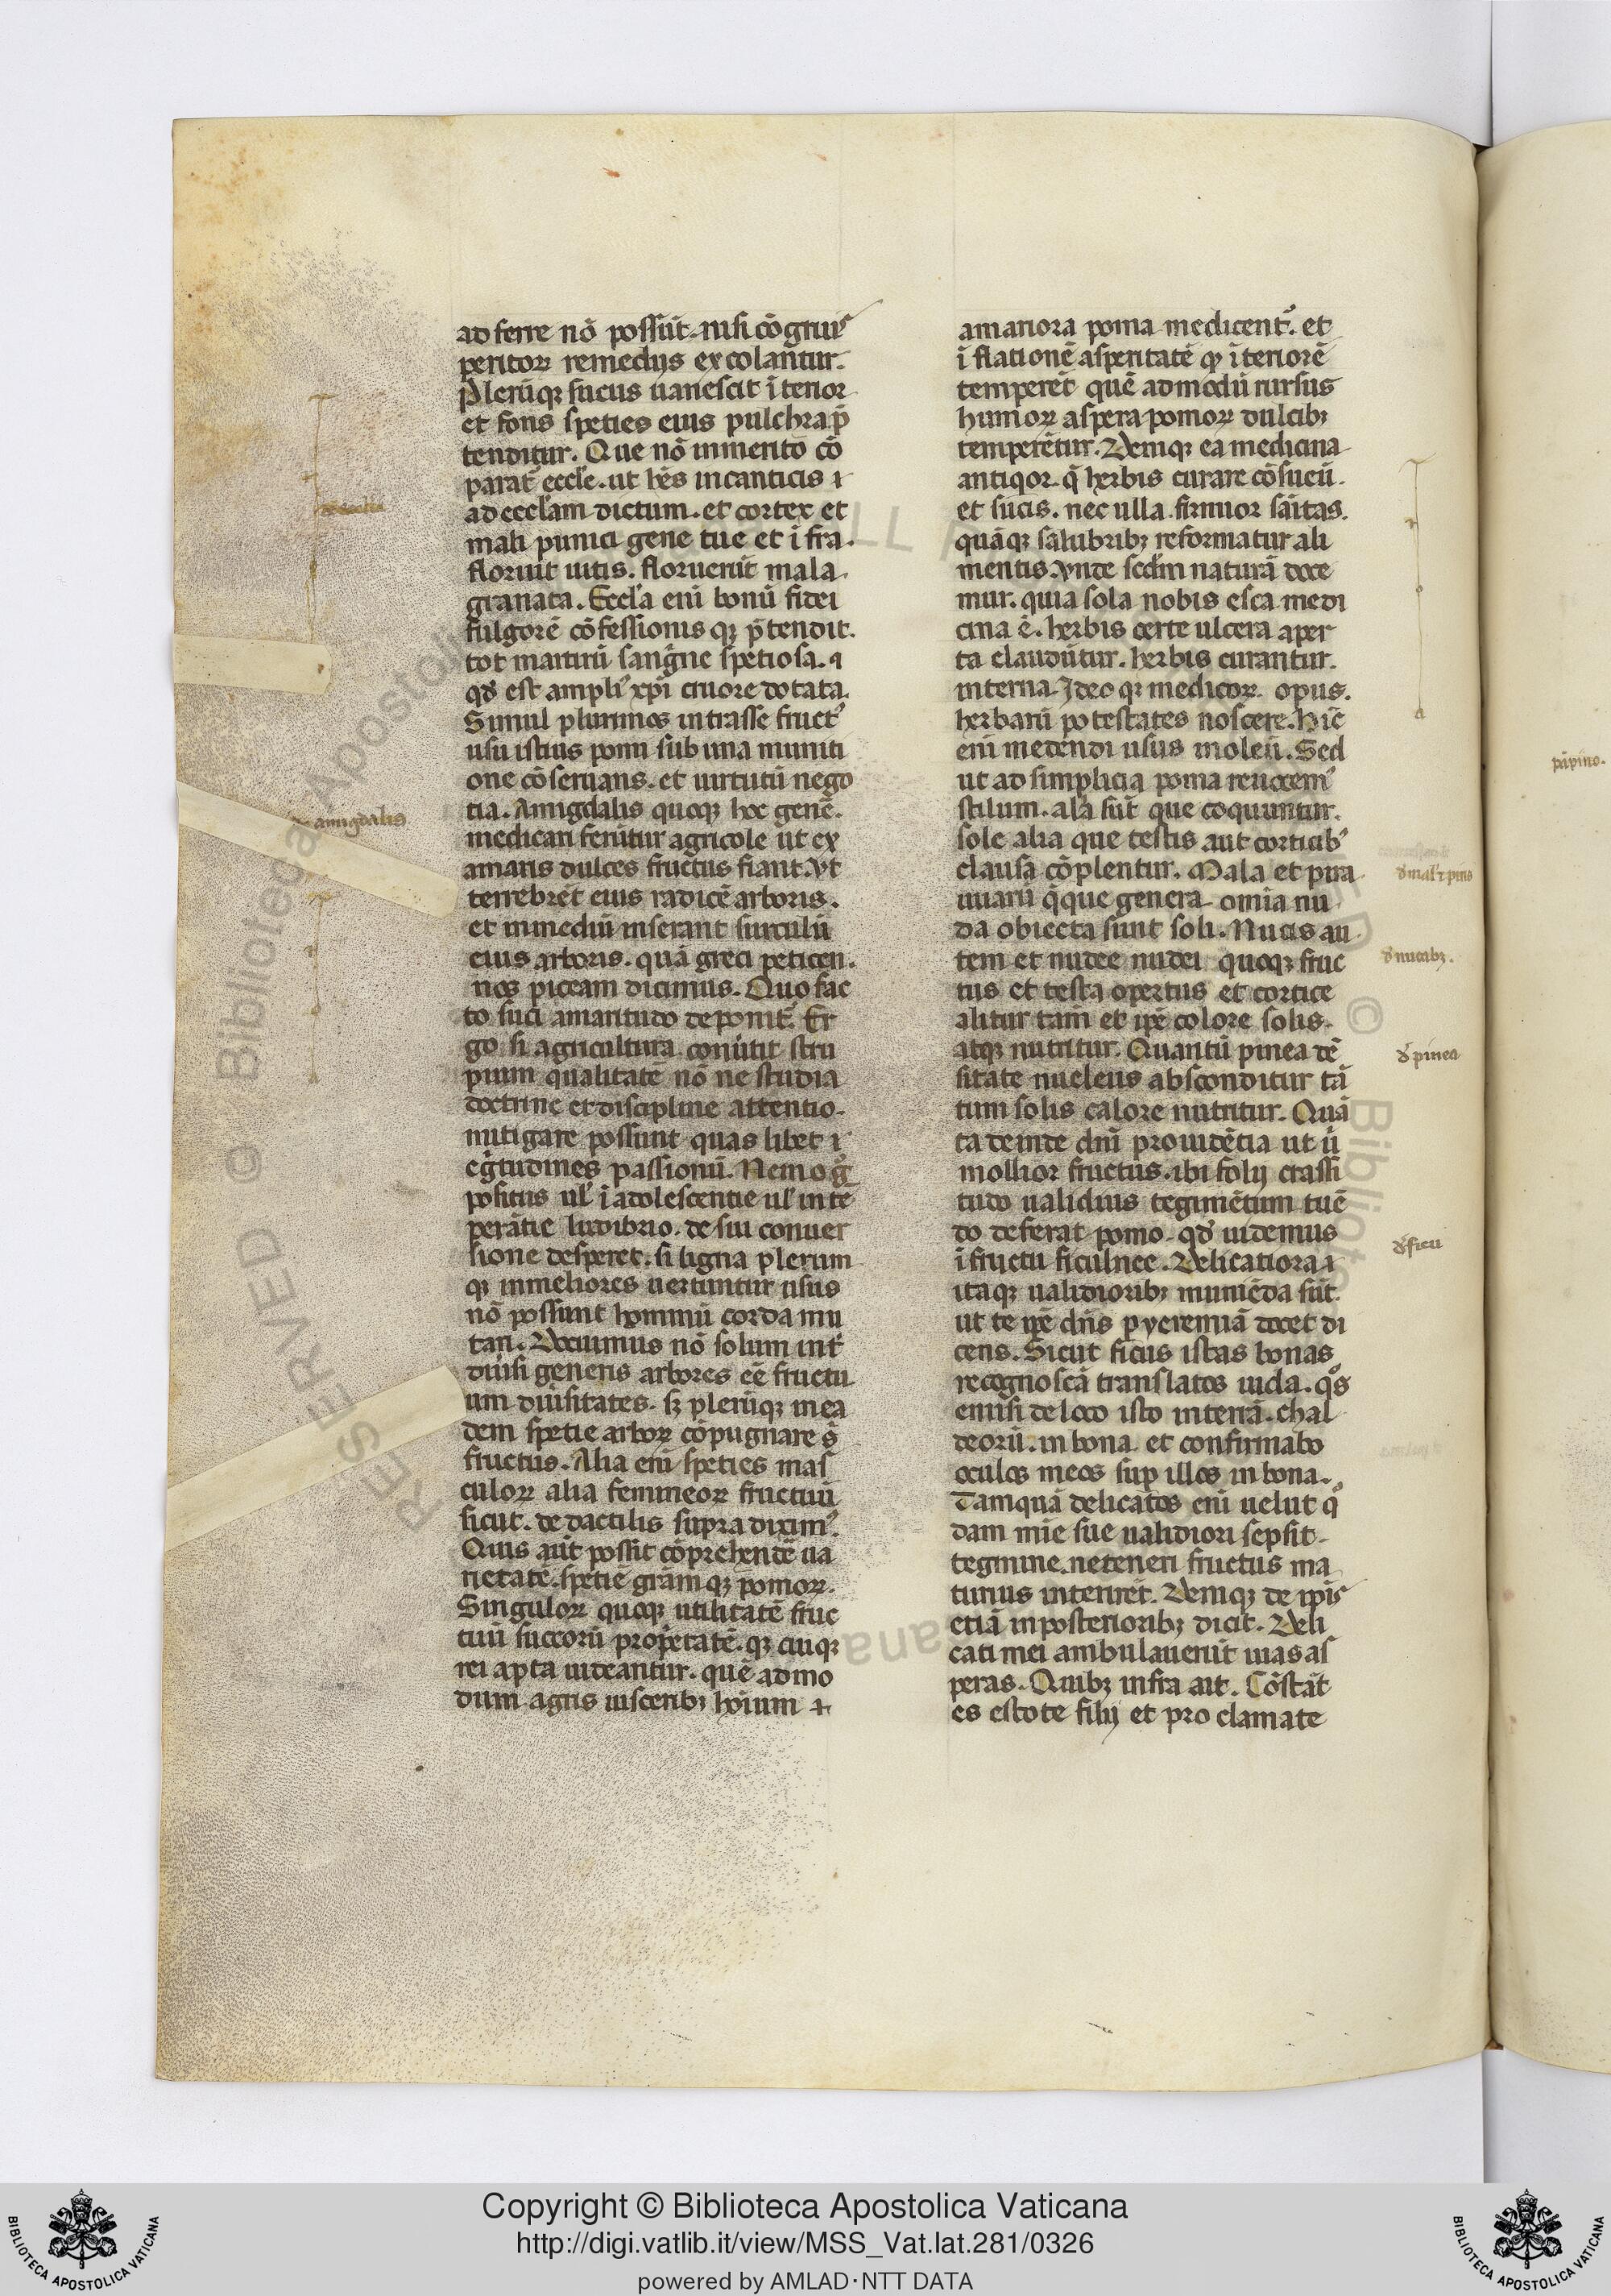 ad ferre nō possūt. nisi cōgruis
peritoꝝ remedijs excolantur.
Plerūqꝫ sucus uanescit īterior
et foris speties eius pulchra p̄
tenditur. Que nō inmerito cō
parat᷑ eccl̄e. ut hēs in canticis ⁊
ad eccl̄am dictum. et cortex et
mali punici gene tue et ī fra.
floruit uitis. floruerūt mala
granata. Eccl̄a eni bonū fidei
fulgorē cōfessionis qꝫ p̄tendit.
tot martirū sanḡne spetiosa. ⁊
qd̄ est ampliꝰ xp̄i cruore dotata.
Simul plurimos intra sse fructꝰ
usu istius pomi sub una muniti
one cōseruans. et uirtutū nego
tia. Amigdalis quoqꝫ hoc genē.
medicari ferūtur agricole ut ex
amaris dulces fructus fiant. vt
terrebrēt eius radicē arboris.
et in mediū inserant surculū
eius arboris. quā greci peticen.
nos piceam dicimus. Quo fac
to suci amaritudo deponit᷑. Er
go si agricultura conūtit stru
pium qualitatē nō ne studia
doctrine et discipline attentio
mitigare possunt quas libet ⁊
eḡtudines passionū. Nemo g̊
positus ul̄ ī adolescentie ul̄ in te
perātie ludibrio. de sui conuer
sione desperet. si ligna plerum
qꝫ in meliores uertuntur usus
nō possunt hominū corda mu
tari. Docuimus nō solum int᷑
diūsi generis arbores eē fructu
um diūsitates. sꝫ plerūqꝫ in ea
dem spetie arboꝝ cōpugnare s̄
fructus. Alia eni speties mas
culoꝝ alia femineoꝝ fructuū
sicut. de dactilis supra diximꝰ.
Quis aūt possit cōprehendē ua
rietatē. spetie grām qꝫ pomoꝝ.
Singuloꝝ quoqꝫ utilitatē fruc
tuū succorū prop̄etatē. qꝫ cuiqꝫ
rei apta uideantur. quē ad mo
dum agris uisceribꝫ hōium ⁊
amariora poma medicent᷑. et
ī flationē asperitatē qꝫ īteriorē
temperēt quē ad modū rursus
humoꝝ aspera pomoꝝ dulcibꝫ
temperētur. Deniqꝫ ea medicina
antiqor. q̄ herbis curare cōsueū.
et sucis. nec ulla firmior sāitas.
quāqꝫ salubribꝫ reformatur ali
mentis. vnde scd̄m naturā doce
mur. quia sola nobis esca medi
cina ē. herbis certe ulcera aper
ta claudūtur. herbis curantur.
interna. Ideo qꝫ medicoꝝ opus.
herbarū potestates noscere. Hīc
eni medendi usus moleū. Sed
ut ad simplicia poma reuocemꝰ
stilum. ala sūt que coquuntur.
sole alia que testis aut corticibꝰ
clausa cōplentur. Mala et pira
uuarū q̄que genera omīa nu
da obiecta sunt soli. Nucis au
tem et nucee nudei quoqꝫ fruc
tus et testa opertus et cortice
alitur tam̄ et ip̄e colore solis.
atqꝫ nutritur. Quantū pinea dē
sitate nucleus absconditur tā
tum solis calore nutritur. Quā
ta deinde dn̄i prouidētia ut ū
mollior fructus. ibi folij crassi
tudo ualidius tegimētum tuē
do deferat pomo. qd̄ uidemus
ī fructu ficulnee. Delicatiora ⁊
itaqꝫ ualidioribꝫ muniēda sūt.
ut te ip̄e dn̄s p yeremiā docet di
cens. Sicut ficus istas bonas
recognoscā translatos iuda. qͦs
emisi de loco isto in terrā. chal
deorū. in bona. et confirmabo
oculos meos sup illos in bona.
Tamquā delicatos eni uelut qͦ
dam mīe sue ualidiori sepsit
tegmine. ne teneri fructus ma
turius interirēt. Deniqꝫ de ip̄is
etiā in posterioribꝫ dicit. Deli
cati mei ambulauerūt uias as
peras. Quibꝫ infra ait. Cōstāt
es estote filij et pro clamate
amigdalis
d̄ mal᷑ ⁊ piris
d̄ nucibꝫ.
d̄ pinea
d̄ ficu
Copyright © Biblioteca Apostolica Vaticana
http://digi.vatlib.it/view/MSS_Vat.lat.281/0326
powered by AMLAD·NTT DATA
BIBLIOTECA APOSTOLICA VATICANA
BIBLIOTECA APOSTOLICA VATICANA